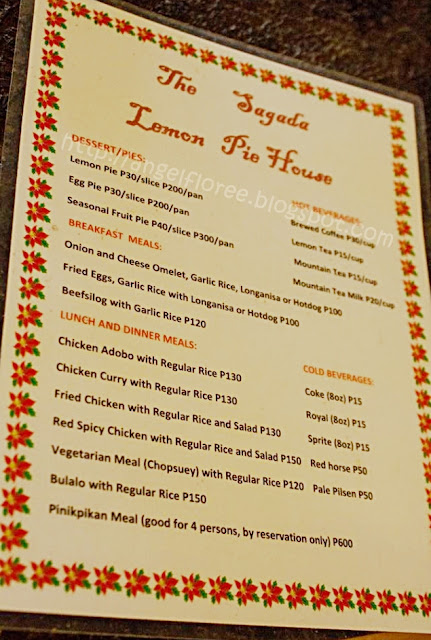 The Sagada
Lemon Pie House
http://angelfloree.blogspot.com
DESSERT/PIES:
Lemon Pie P30/slice P200/pan
Egg Pie P30/slice P200/pan
Seasonal Fruit Pie P40/slice P300/pan
HOT BEVERAGES:
Brewed Coffee P30/cup
Lemon Tea P15/cup
Mountain Tea P15/cup
Mountain Tea Milk P20/cup
BREAKFAST MEALS:
Onion and Cheese Omelet, Garlic Rice, Longanisa or Hotdog P100
Fried Eggs, Garlic Rice with Longanisa or Hotdog P100
Beefsilog with Garlic Rice P120
LUNCH AND DINNER MEALS:
Chicken Adobo with Regular Rice P130
Chicken Curry with Regular Rice P130
Fried Chicken with Regular Rice and Salad P130
Red Spicy Chicken with Regular Rice and Salad P150
Vegetarian Meal (Chopsuey) with Regular Rice P120
Bulalo with Regular Rice P150
Pinikpikan Meal (good for 4 persons, by reservation only) P600
COLD BEVERAGES:
Coke (8oz) P15
Royal (8oz) P15
Sprite (8oz) P15
Red horse P50
Pale Pilsen P50